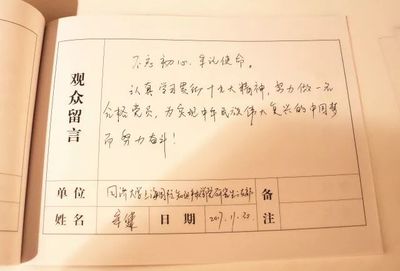 观众留言
不忘初心、牢记使命。
认真学习贯彻十九大精神，努力做一名
合格党员，为实现中华民族伟大复兴的中国梦
而努力奋斗！
单位 同济大学上海国际知识产权学院研究生支部 备注
姓名 日期 2017.11.20.